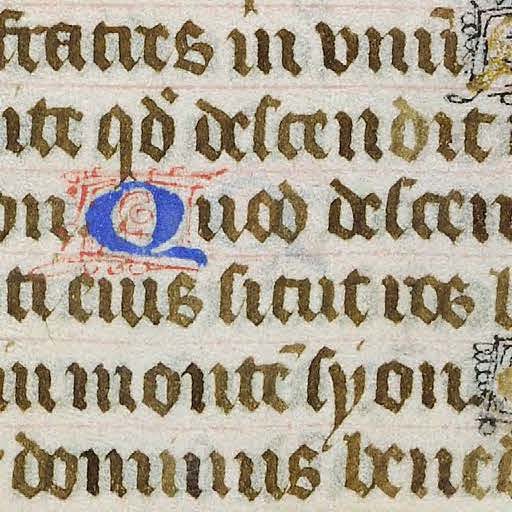 fratres in unū
nte qđ descendit
on. Quod descen
ti eius sicut ros
in montē syon
dominus bened